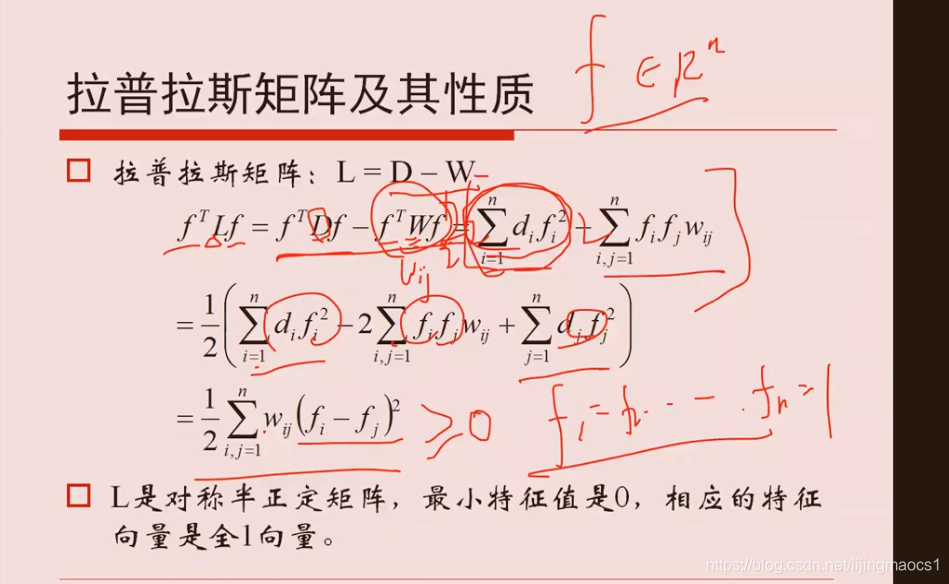 f ∈ R^n
拉普拉斯矩阵及其性质
拉普拉斯矩阵：L = D − W
f^T L f = f^T D f − f^T W f = ∑_{i=1}^{n} d_i f_i^2 − ∑_{i,j=1}^{n} f_i f_j w_{ij}
w_{ij}
= 1/2 ( ∑_{i=1}^{n} d_i f_i^2 − 2 ∑_{i,j=1}^{n} f_i f_j w_{ij} + ∑_{j=1}^{n} d_j f_j^2 )
= 1/2 ∑_{i,j=1}^{n} w_{ij} (f_i − f_j)^2 ≥ 0 f_1 = f_2 ... f_n = 1
L是对称半正定矩阵，最小特征值是0，相应的特征
向量是全1向量。
https://blog.csdn.net/lijingmaocs1